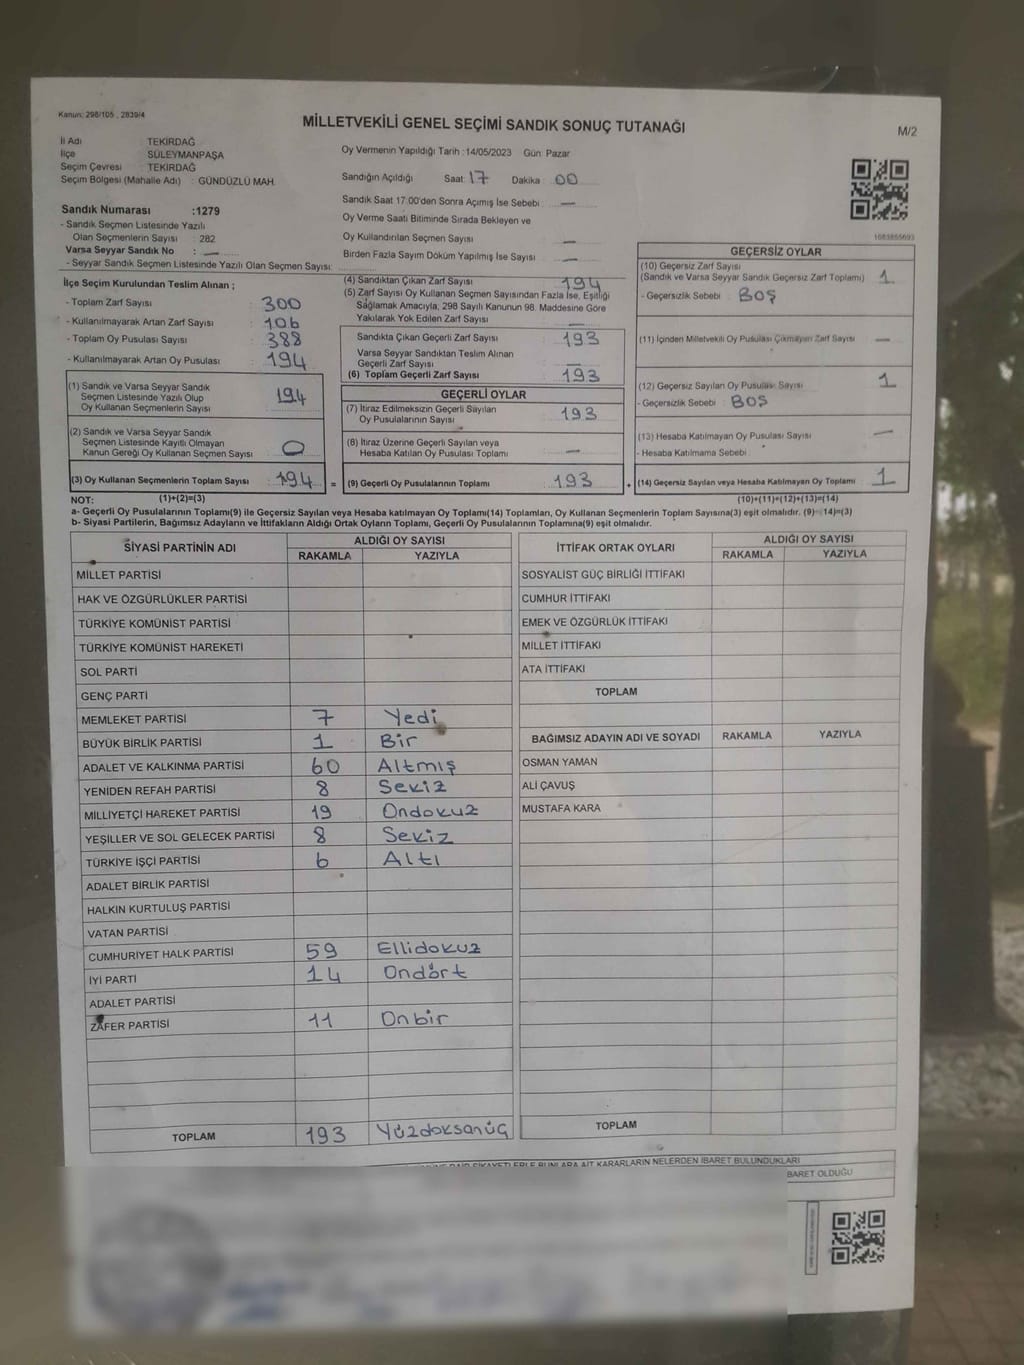 Kanun: 298/105 , 2839/4
MİLLETVEKİLİ GENEL SEÇİMİ SANDIK SONUÇ TUTANAĞI
M/2
İl Adı TEKİRDAĞ
İlçe SÜLEYMANPAŞA
Seçim Çevresi : TEKİRDAĞ
Seçim Bölgesi (Mahalle Adı) : GÜNDÜZLÜ MAH.
Oy Vermenin Yapıldığı Tarih : 14/05/2023 Gün: Pazar
Sandığın Açıldığı Saat: 17 Dakika : 00
Sandık Saat 17.00'den Sonra Açımış İse Sebebi : —
Oy Verme Saati Bitiminde Sırada Bekleyen ve
Oy Kullandırılan Seçmen Sayısı : —
Birden Fazla Sayım Döküm Yapılmış İse Sayısı : —
Sandık Numarası :1279
- Sandık Seçmen Listesinde Yazılı
Olan Seçmenlerin Sayısı : 282
Varsa Seyyar Sandık No : —
- Seyyar Sandık Seçmen Listesinde Yazılı Olan Seçmen Sayısı:
İlçe Seçim Kurulundan Teslim Alınan ;
- Toplam Zarf Sayısı : 300
- Kullanılmayarak Artan Zarf Sayısı : 106
- Toplam Oy Pusulası Sayısı : 388
- Kullanılmayarak Artan Oy Pusulası : 194
(1) Sandık ve Varsa Seyyar Sandık
Seçmen Listesinde Yazılı Olup
Oy Kullanan Seçmenlerin Sayısı : 194
(2) Sandık ve Varsa Seyyar Sandık
Seçmen Listesinde Kayıtlı Olmayan
Kanun Gereği Oy Kullanan Seçmen Sayısı : 0
(3) Oy Kullanan Seçmenlerin Toplam Sayısı : 194 =
(4) Sandıktan Çıkan Zarf Sayısı : 194
(5) Zarf Sayısı Oy Kullanan Seçmen Sayısından Fazla İse, Eşitliği
Sağlamak Amacıyla, 298 Sayılı Kanunun 98. Maddesine Göre
Yakılarak Yok Edilen Zarf Sayısı : —
Sandıkta Çıkan Geçerli Zarf Sayısı : 193
Varsa Seyyar Sandıktan Teslim Alınan
Geçerli Zarf Sayısı : —
(6) Toplam Geçerli Zarf Sayısı : 193
GEÇERLİ OYLAR
(7) İtiraz Edilmeksizin Geçerli Sayılan
Oy Pusulalarının Sayısı : 193
(8) İtiraz Üzerine Geçerli Sayılan veya
Hesaba Katılan Oy Pusulası Toplamı : —
(9) Geçerli Oy Pusulalarının Toplamı : 193 +
1683855693
GEÇERSİZ OYLAR
(10) Geçersiz Zarf Sayısı
(Sandık ve Varsa Seyyar Sandık Geçersiz Zarf Toplamı) : 1
- Geçersizlik Sebebi : BOŞ
(11) İçinden Milletvekili Oy Pusulası Çıkmayan Zarf Sayısı : —
(12) Geçersiz Sayılan Oy Pusulası Sayısı : 1
- Geçersizlik Sebebi : BOŞ
(13) Hesaba Katılmayan Oy Pusulası Sayısı : —
- Hesaba Katılmama Sebebi :
(14) Geçersiz Sayılan veya Hesaba Katılmayan Oy Toplamı : 1
NOT: (1)+(2)=(3) (10)+(11)+(12)+(13)=(14)
a- Geçerli Oy Pusulalarının Toplamı(9) ile Geçersiz Sayılan veya Hesaba katılmayan Oy Toplamı(14) Toplamları, Oy Kullanan Seçmenlerin Toplam Sayısına(3) eşit olmalıdır. (9)+(14)=(3)
b- Siyasi Partilerin, Bağımsız Adayların ve İttifakların Aldığı Ortak Oyların Toplamı, Geçerli Oy Pusulalarının Toplamına(9) eşit olmalıdır.
SİYASİ PARTİNİN ADI ALDIĞI OY SAYISI
RAKAMLA YAZIYLA
MİLLET PARTİSİ
HAK VE ÖZGÜRLÜKLER PARTİSİ
TÜRKİYE KOMÜNİST PARTİSİ
TÜRKİYE KOMÜNİST HAREKETİ
SOL PARTİ
GENÇ PARTİ
MEMLEKET PARTİSİ 7 Yedi
BÜYÜK BİRLİK PARTİSİ 1 Bir
ADALET VE KALKINMA PARTİSİ 60 Altmış
YENİDEN REFAH PARTİSİ 8 Sekiz
MİLLİYETÇİ HAREKET PARTİSİ 19 Ondokuz
YEŞİLLER VE SOL GELECEK PARTİSİ 8 Sekiz
TÜRKİYE İŞÇİ PARTİSİ 6 Altı
ADALET BİRLİK PARTİSİ
HALKIN KURTULUŞ PARTİSİ
VATAN PARTİSİ
CUMHURİYET HALK PARTİSİ 59 Ellidokuz
İYİ PARTİ 14 Ondört
ADALET PARTİSİ
ZAFER PARTİSİ 11 Onbir
TOPLAM 193 Yüzdoksanüç
İTTİFAK ORTAK OYLARI ALDIĞI OY SAYISI
RAKAMLA YAZIYLA
SOSYALİST GÜÇ BİRLİĞİ İTTİFAKI
CUMHUR İTTİFAKI
EMEK VE ÖZGÜRLÜK İTTİFAKI
MİLLET İTTİFAKI
ATA İTTİFAKI
TOPLAM
BAĞIMSIZ ADAYIN ADI VE SOYADI RAKAMLA YAZIYLA
OSMAN YAMAN
ALİ ÇAVUŞ
MUSTAFA KARA
TOPLAM
ŞİKAYETLERLE BUNLARA AİT KARARLARIN NELERDEN İBARET BULUNDUKLARI
BARET OLDUĞU